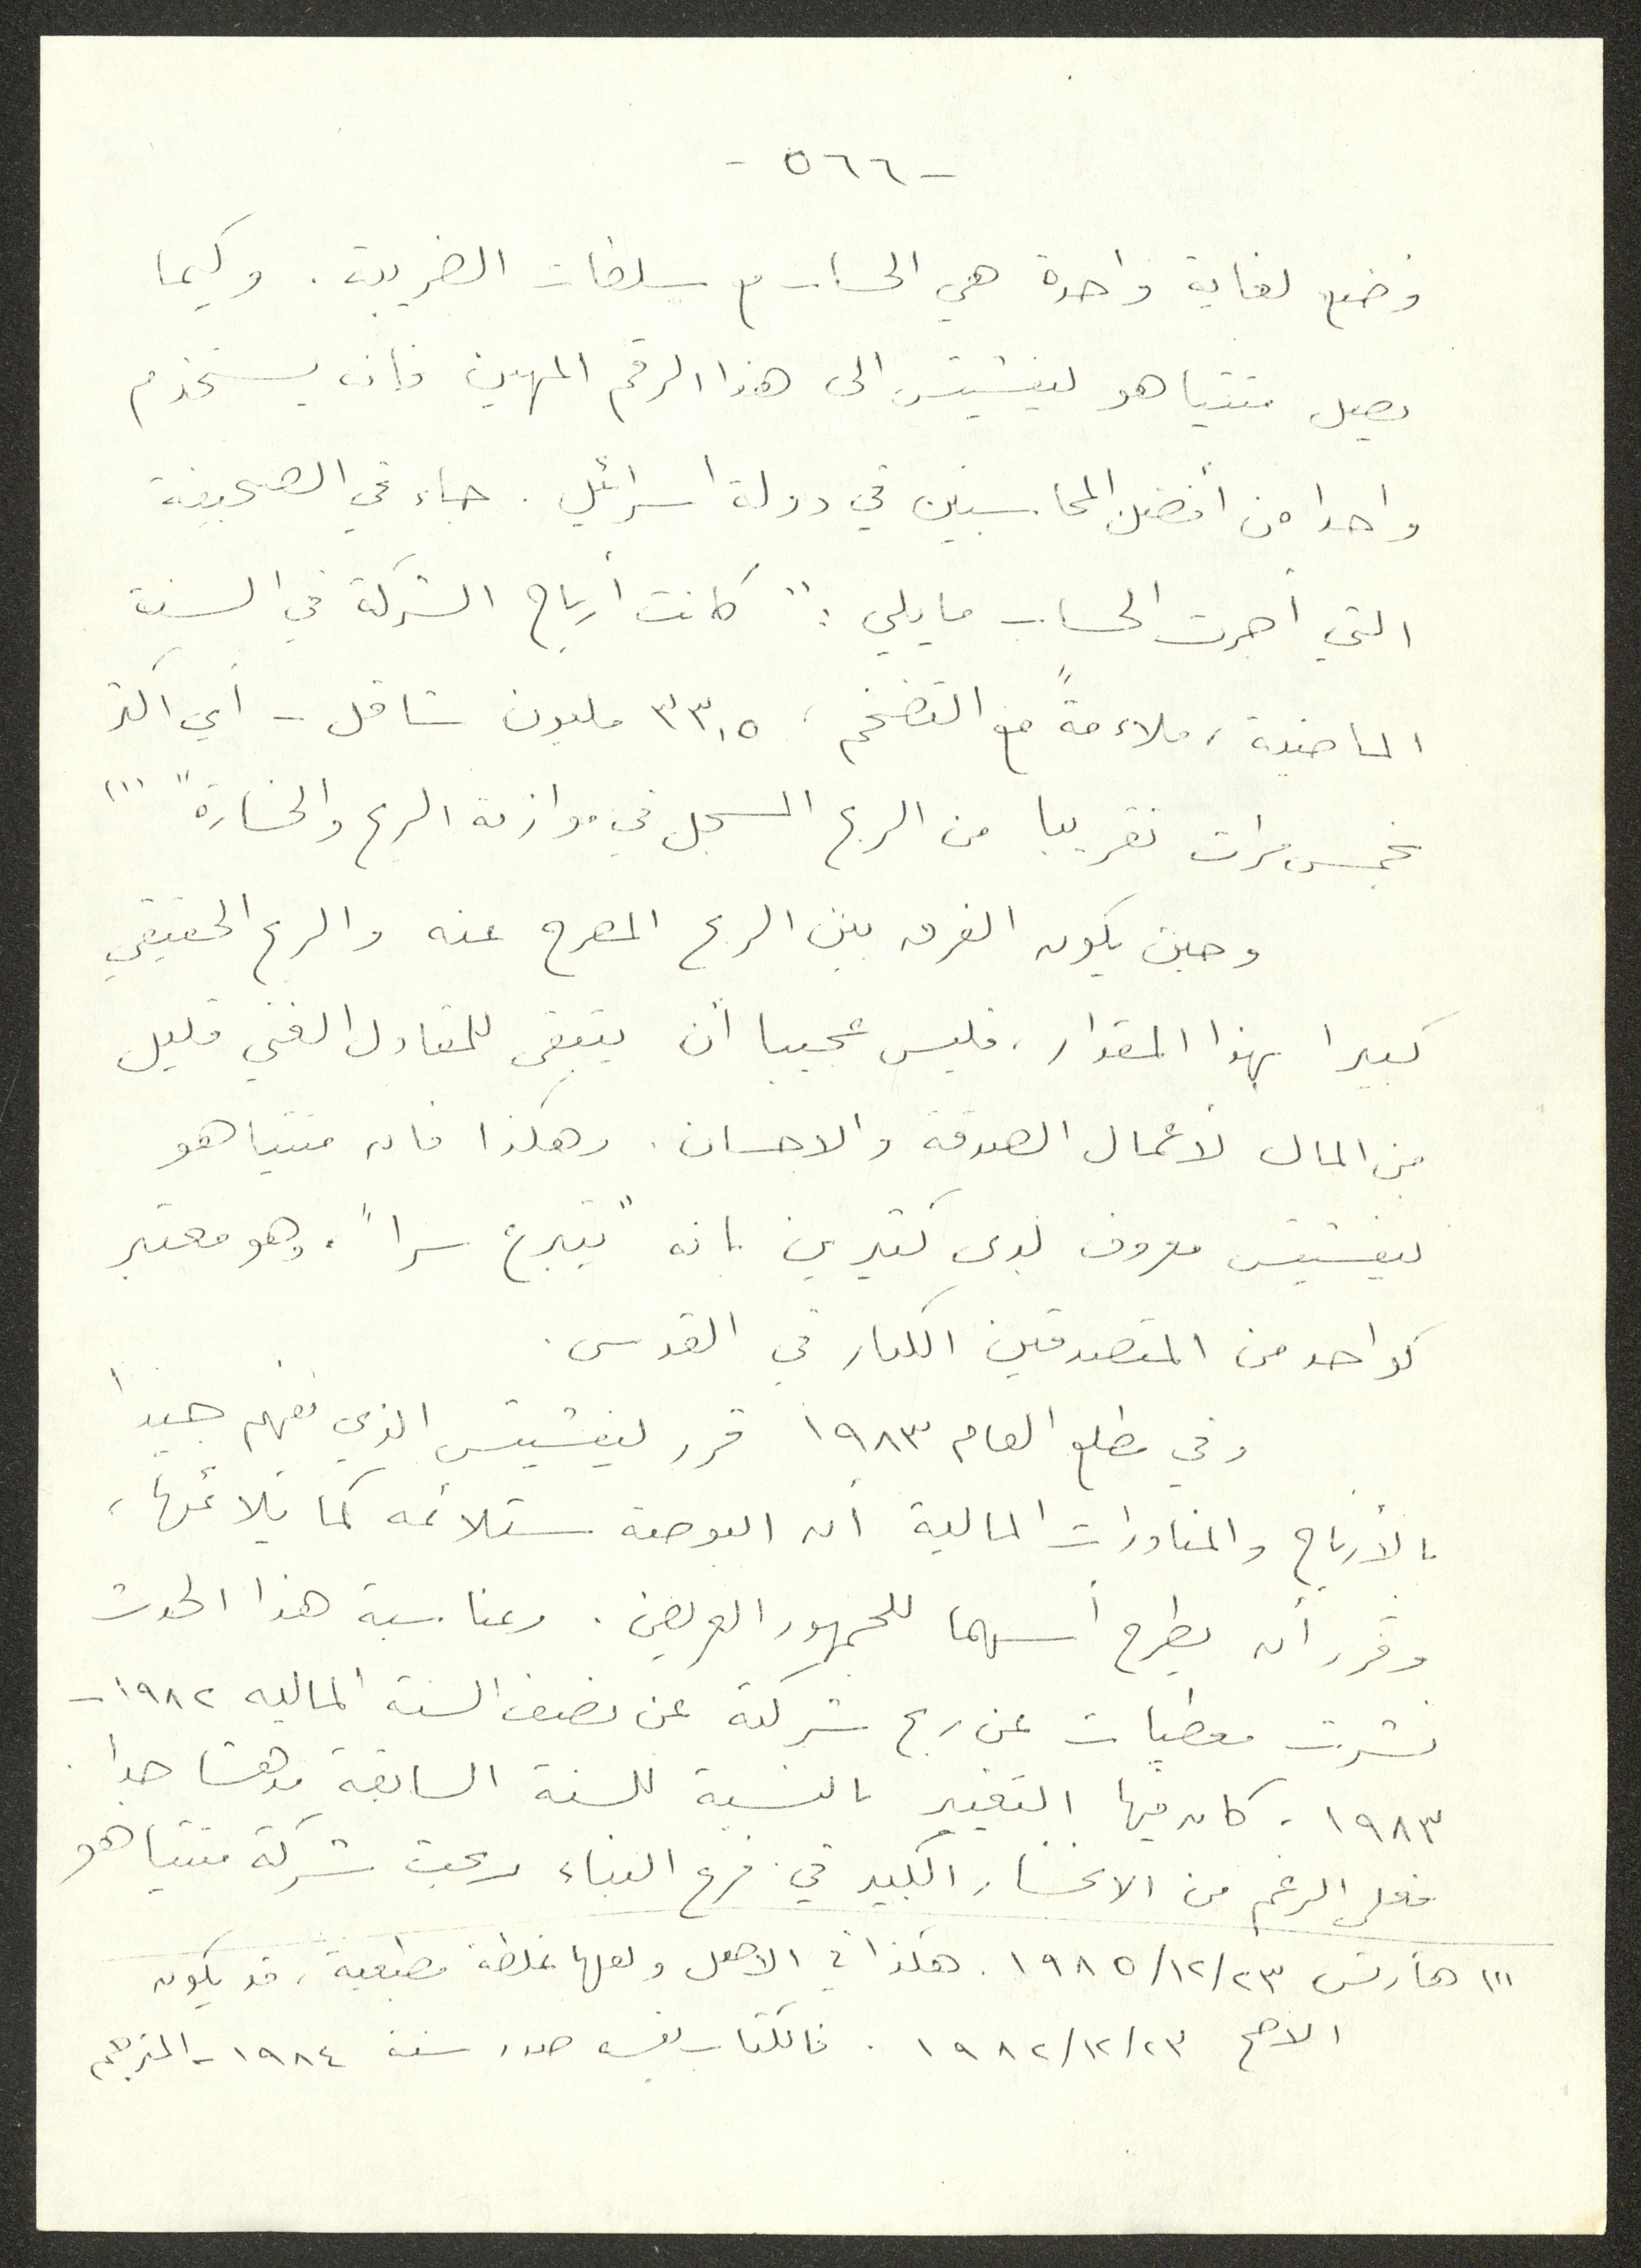 - ٥٦٦ -
وضع لغاية واحدة هي الحساب مع سلطات الضريبة . وكيما
يصل متتياهو ليفشيتس الى هذا الرقم المهين فإنه يستخدم
واحدا من أفضل المحاسبين في دولة اسرائيل . جاء في الصحيفة
التي أجرت الحساب مايلي : " كانت أرباح الشركة في السنة
الماضية ، ملاءمةً مع التضخم ، ٣٣,٥ مليون شاقل - أي اكثر
بخمس مرات تقريبا من الربح المسجل في موازنة الربح والخسارة " (١)
وحين يكون الفرق بين الربح المصرح عنه والربح الحقيقي
كبيرا بهذا المقدار ، فليس عجيبا أن يتبقى للمقاول الغني قليل
من المال لأعمال الصدقة والاحسان . وهكذا فان متتياهو
ليفشيتس معروف لدى كثيرين بانه " يتبرع سرا " . وهو معتبر
كواحد من المتصدقين الكبار في القدس .
وفي مطلع العام ١٩٨٣ قرر ليفشيتس الذي يفهم جيدا
بالأرباح والمناورات المالية أن البورصة ستلائمه كما يلائمها ،
وقرر أن يطرح أسهما للجمهور العريض . وبمناسبة هذا الحدث
نشرت معطيات عن ربح شركته عن نصف السنة المالية ١٩٨٢ -
١٩٨٣ ، كان فيها التغيير بالنسبة للسنة السابقة مدهشا جدا .
فعلى الرغم من الانحسار الكبير في فرع البناء ربحت شركة متتياهو
(١) هآرتس ٢٣/١٢/١٩٨٥ . هكذا في الاصل ولعلها غلطة مطبعية ، قد يكون
الاصح ٢٣/١٢/١٩٨٢ . فالكتاب نفسه صدر سنة ١٩٨٤ - المترجم